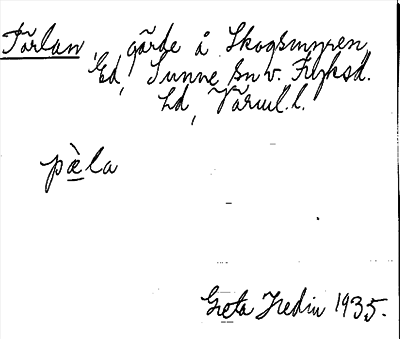 Färlan, gärde å Skogsmyren,
Ed, Sunne sn v. Fryksd.
hd, Värml. l.
pæ̀la
Greta Hedin 1935.